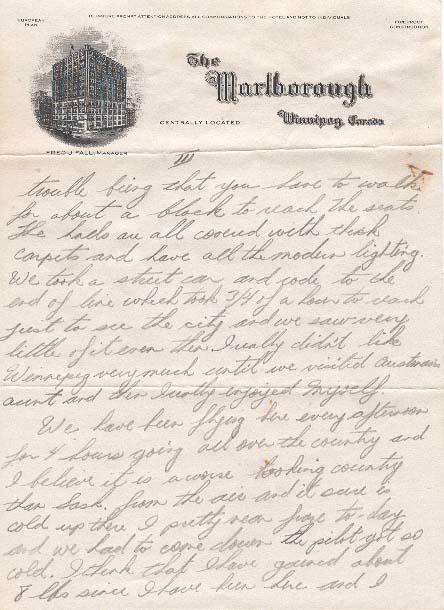 EUROPEAN PLAN
TO INSURE PROMPT ATTENTION ADDRESS ALL COMMUNICATIONS TO THE HOTEL AND NOT TO INDIVIDUALS
FIREPROOF CONSTRUCTION
The
Marlborough
CENTRALLY LOCATED
Winnipeg, Canada
FRED J. FALL, MANAGER
III
trouble being that you have to walk
for about a block to reach the seats.
The halls are all covered with thick
carpets and have all the modern lighting.
We took a street car and rode to the
end of line which took 3/4 of a hour to reach
just to see the city and we saw very
little of it even then. I really didn't like
Winnepeg very much until we visited
aunt and then I really enjoyed myself.
We have been flying here every afternoon
for 4 hours going all over the country and
I believe it is a worse looking country
than Sask. from the air and it sure is
cold up there I pretty near froze to day
and we had to come down the pilot got so
cold. I think that I have gained about
8 lbs since I have been here and I